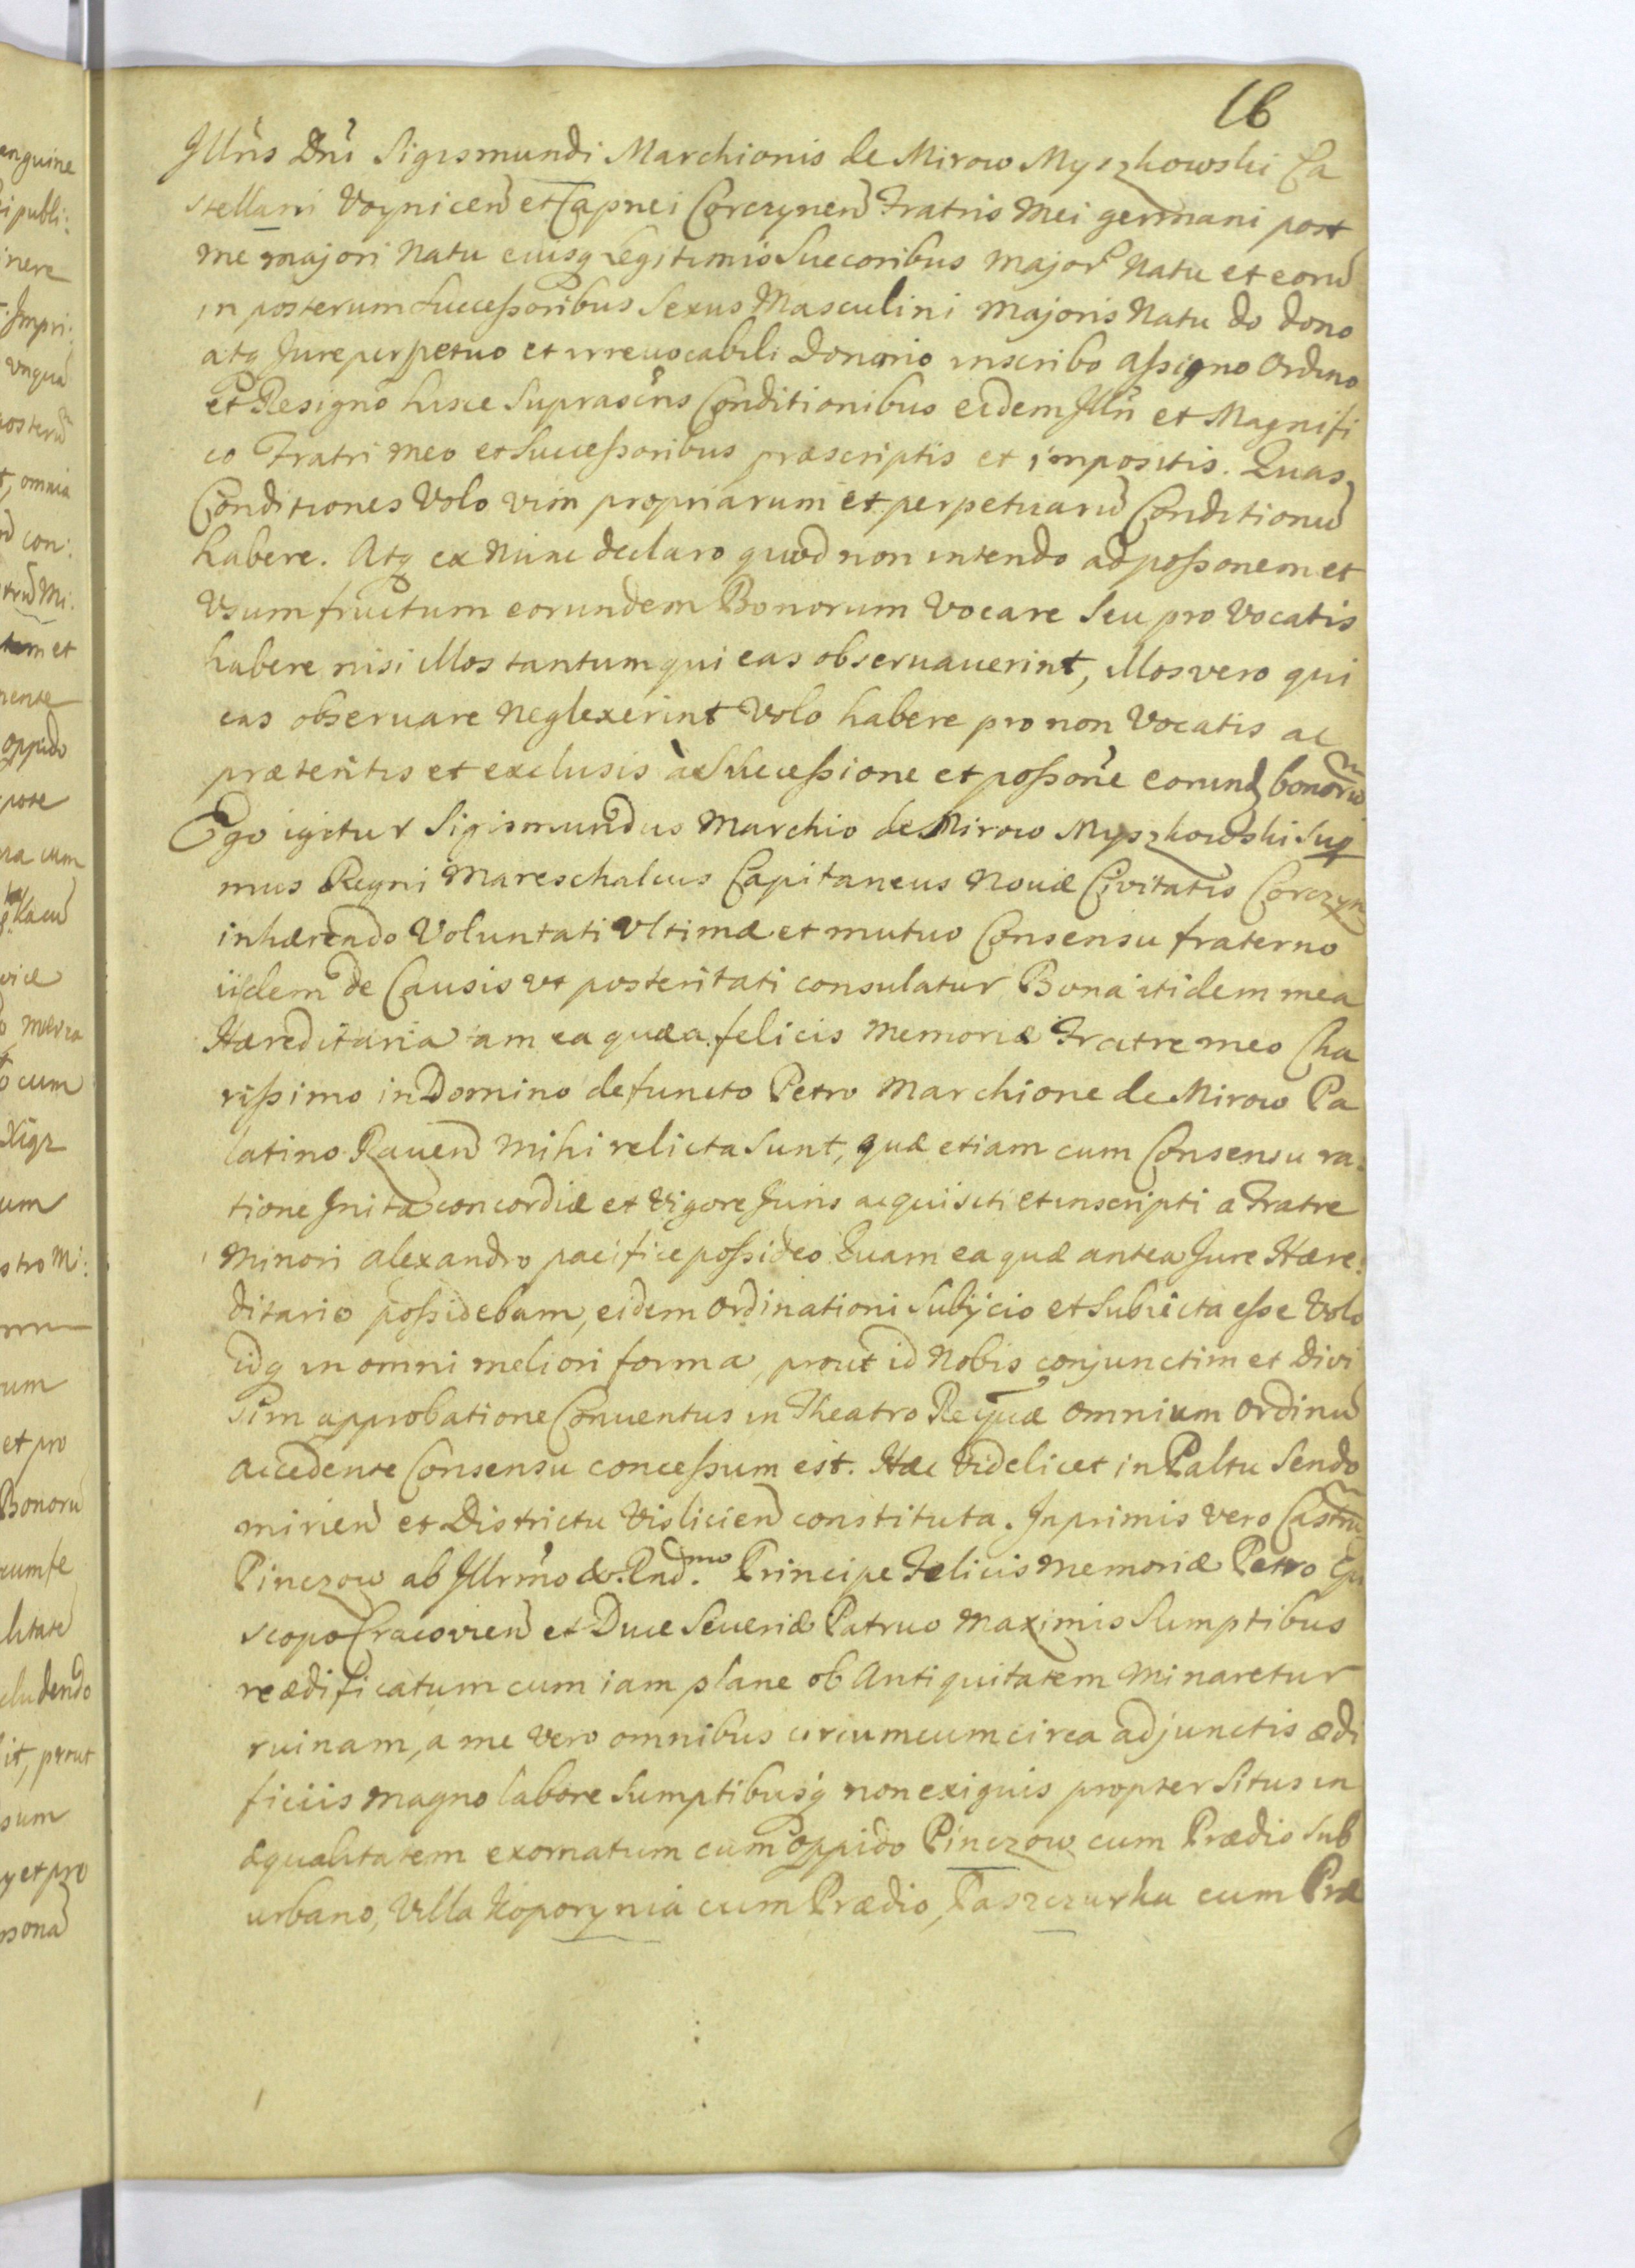 16
Jllris Dni Sigismundi Marchionis de Mirow Myszkowski Ca
stellani Voynicen et Capnei Corczynen Fratris Mei germani post
me majori Natu eiusq Legitimis Succoribus major Natu et eoru
in posterum Successoribus Sexus Masculini Majoris Natu do dono
atq Jure perpetuo et irreuocabili donario inscribo assigno Ordino
et Resigno hisce Suprascris Conditionibus eidem Jllri et Magnifi
co Fratri meo et Successoribus præscriptis et impositis. Quas
Conditiones Volo vim propriarum et perpetuaru Conditionu
habere. Atq ex Nunc declaro quod non intendo ad possonem et
Vsum fructum eorundem Bonorum Vocare Seu pro Vocatis
habere nisi illos tantum qui eas obseruauerint, illos vero qui
eas obseruare Neglexerint Volo habere pro non Vocatis ac
præteritis et exclusis à Successione et possone eorund bonoru
Ego igitur Sigismundus Marchio de Mirow Myszkowski Sup
mus Regni Mareschalcus Capitaneus Nouæ Civitatis Corczyn
inhærendo Voluntati Vltimæ et mutuo Consensu fraterno
iisdem de Causis vt posteritati consulatur Bona itidem mea
Hæreditaria tam ea quæ a felicis Memoriæ Fratre meo Cha
rissimo in Domino defuncto Petro Marchione de Mirow Pa
latino Rauen Mihi relicta Sunt, quæ etiam cum Consensu ra:
tione Jnitæ concordiæ et Vigore Juris acquisiti et inscripti a Fratre
Minori alexandro pacifice possideo Quam ea quæ antea Jure Hære:
ditario possidebam, eidem Ordinationi Subijcio et Subiecta esse Volo
idq in omni meliori forma, prout id Nobis conjunctim et divi
sim approbatione Conuentus in Theatro Reipuæ omnium Ordinu
accedente Consensu concessum est. Hæc Videlicet in Paltu Sendo
mirien et Districtu Vislicien constituta. Jnprimis vero Castru
Pinczow ab Jllrmo & Rnd.mo Principe Felicis Memoriæ Petro Epi
scopo Cracovien et Duce Seueriæ Patruo Maximis Sumptibus
reædificatum cum iam plane ob Antiquitatem Minaretur
ruinam, a me Vero omnibus circumcumcirca adjunctis ædi
ficiis magno labore Sumptibusq non exiguis propter Situs in
æqualitatem exornatum cum Oppido Pinczow cum Prædio Sub
urbano, Villa Koporynia cum Prædio, Paszczurka cum Præ